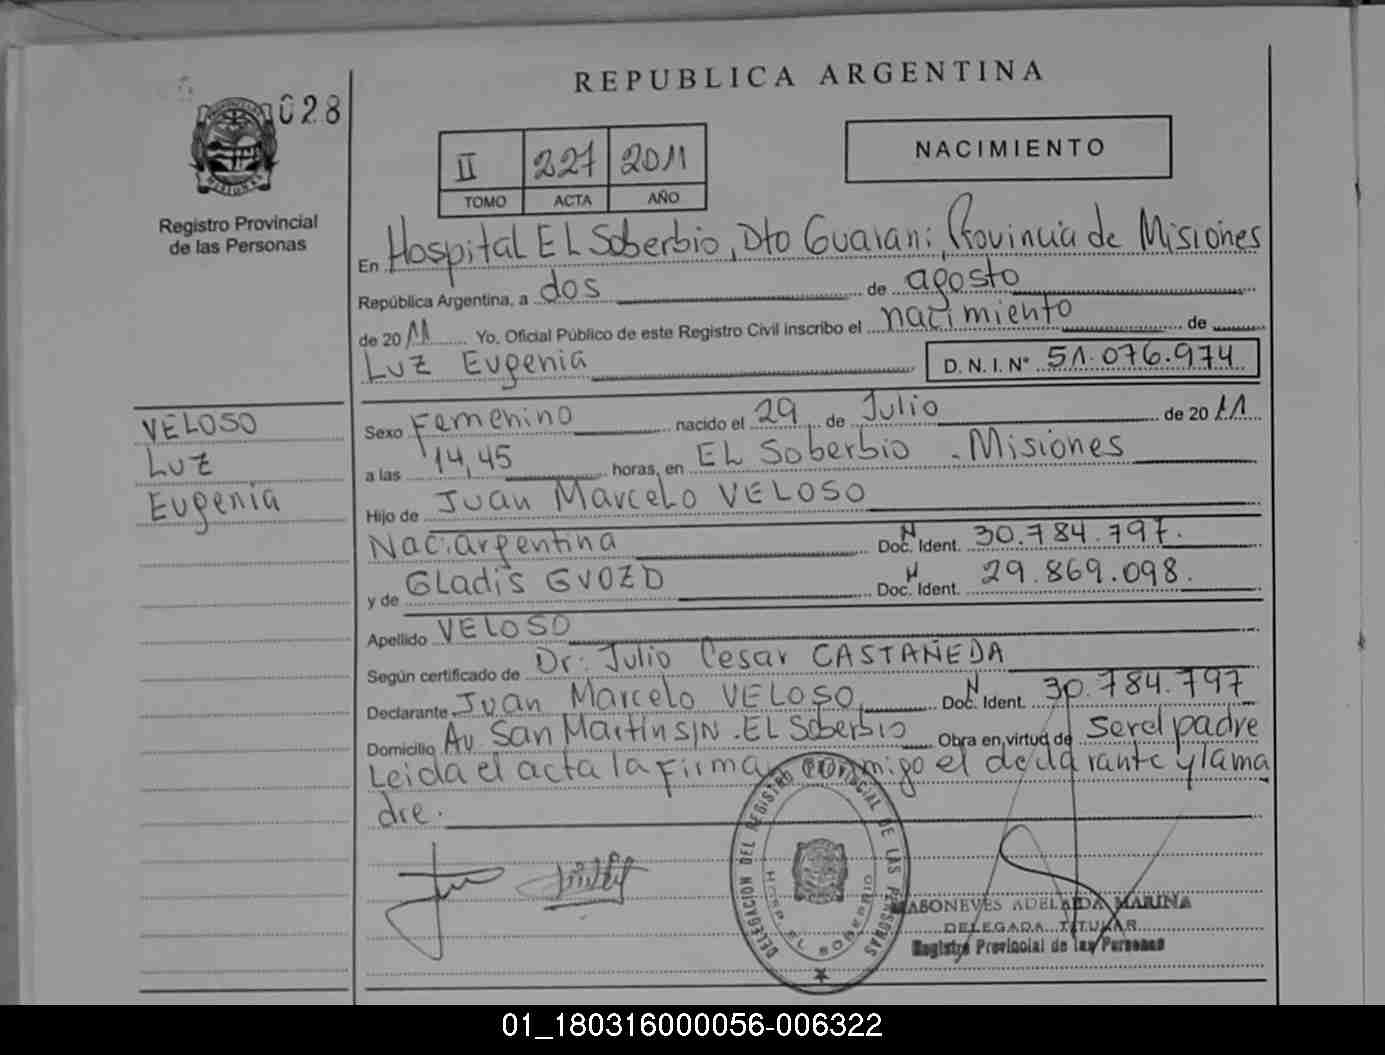 REPUBLICA ARGENTINA
028
II 227 2011
TOMO ACTA AÑO
NACIMIENTO
Registro Provincial
de las Personas
En Hospital EL Soberbio, Dto Guarani; Provincia de Misiones
República Argentina, a dos de agosto
de 2011 Yo, Oficial Público de este Registro Civil inscribo el nacimiento de
Luz Eugenia D. N. I. N° 51.076.974
VELOSO
Luz
Eugenia
Sexo Femenino nacido el 29 de Julio de 2011
a las 14,45 horas, en EL Soberbio - Misiones
Hijo de Juan Marcelo VELOSO
Nac. argentina Doc. Ident. N 30.784.797.
y de Gladis GVOZD Doc. Ident. N 29.869.098.
Apellido VELOSO
Según certificado de Dr: Julio Cesar CASTAÑEDA
Declarante Juan Marcelo VELOSO Doc. Ident. N 30.784.797
Domicilio Av San Martin S/N. EL Soberbio Obra en virtud de ser el padre
Leida el acta la firma conmigo el declarante y la ma
dre.
DELEGACION DEL REGISTRO PROVINCIAL DE LAS PERSONAS
HOSP. EL SOBERBIO
ADELAIDA MARINA
DELEGADA TITULAR
Registro Provincial de las Personas
01_180316000056-006322